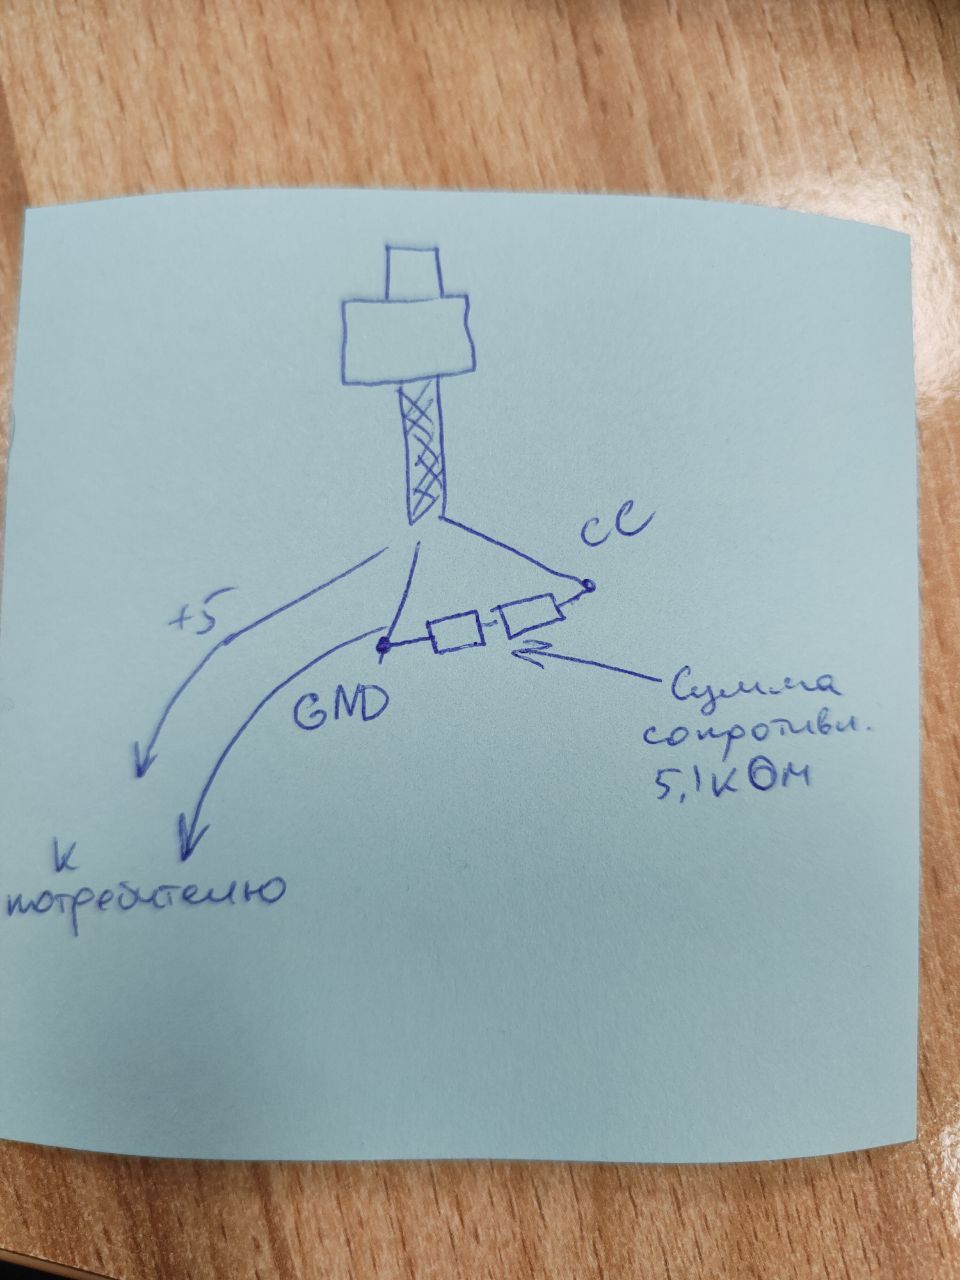 CC
+5
GND
Сумма
сопротивл.
5,1кОм
к
потребителю